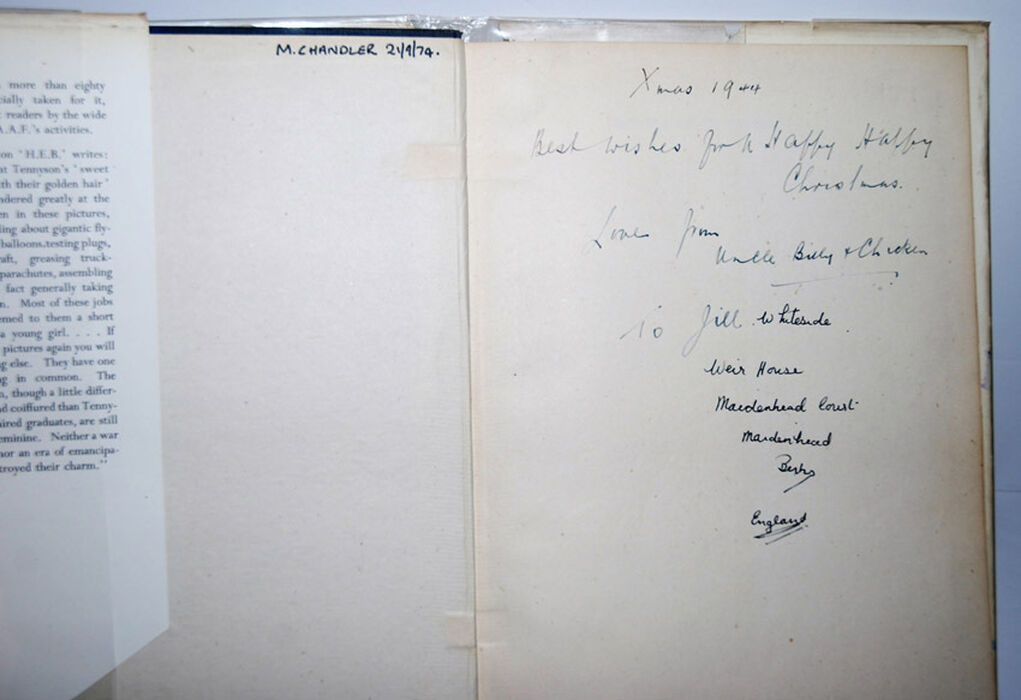 more than eighty
cially taken for it,
readers by the wide
A.A.F.'s activities.
on 'H.E.B.' writes:
at Tennyson's 'sweet
th their golden hair'
ndered greatly at the
en in these pictures,
ling about gigantic fly-
balloons, testing plugs,
raft, greasing truck-
parachutes, assembling
fact generally taking
n. Most of these jobs
emed to them a short
a young girl. . . . If
pictures again you will
g else. They have one
g in common. The
n, though a little differ-
d coiffured than Tenny-
ired graduates, are still
eminine. Neither a war
nor an era of emancipa-
troyed their charm."
M. CHANDLER 21/9/74.
Xmas 1944
Best wishes for a Happy Happy
Christmas.
Love from
Uncle Billy & Chicken
To Jill Whiteside
Weir House
Maidenhead Court
Maidenhead
Berks
England